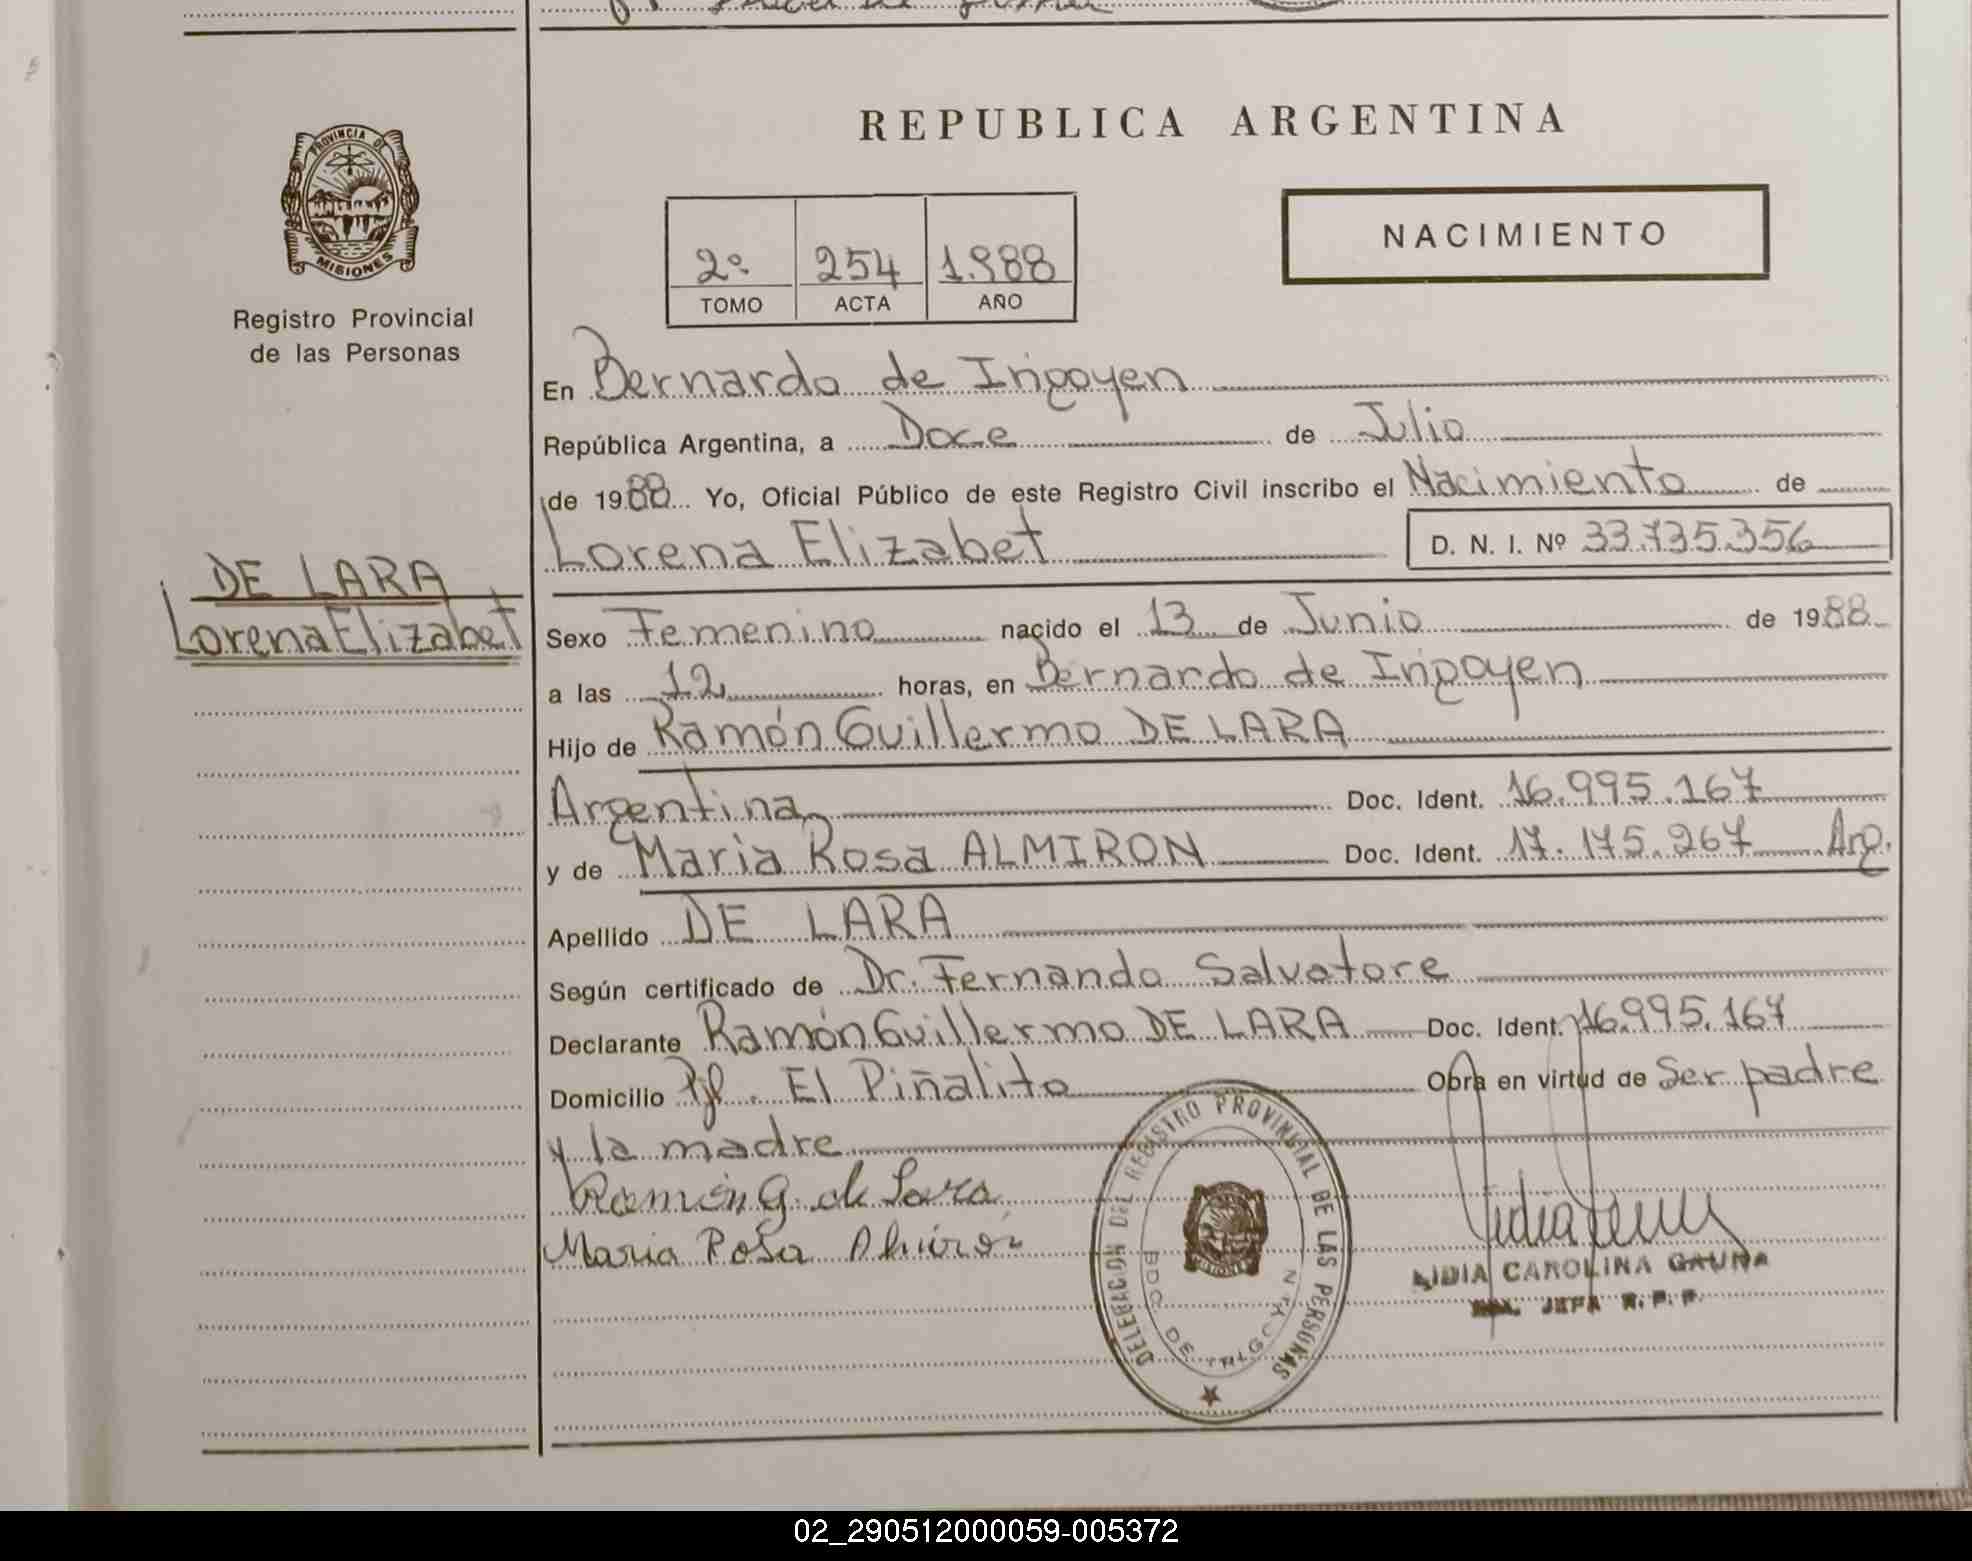 PROVINCIA DE
MISIONES
Registro Provincial
de las Personas
DE LARA
Lorena Elizabet
REPUBLICA ARGENTINA
2º 254 1.988
TOMO ACTA AÑO
NACIMIENTO
En Bernardo de Irigoyen
República Argentina, a Doce de Julio
de 1988 Yo, Oficial Público de este Registro Civil inscribo el Nacimiento de
Lorena Elizabet D. N. I. Nº 33.735.356
Sexo Femenino nacido el 13 de Junio de 1988
a las 12 horas, en Bernardo de Irigoyen
Hijo de Ramón Guillermo DE LARA
Argentina Doc. Ident. 16.995.167
y de Maria Rosa ALMIRON Doc. Ident. 17.175.267 Arg.
Apellido DE LARA
Según certificado de Dr. Fernando Salvatore
Declarante Ramón Guillermo DE LARA Doc. Ident. 16.995.167
Domicilio Pje. El Piñalito Obra en virtud de Ser padre
y la madre
Ramón G. de Lara
Maria Rosa Almirón
DELEGACION DEL REGISTRO PROVINCIAL DE LAS PERSONAS
BDO. DE IRIGOYEN
LIDIA CAROLINA GAUNA
JEFA R.P.P.
02_290512000059-005372